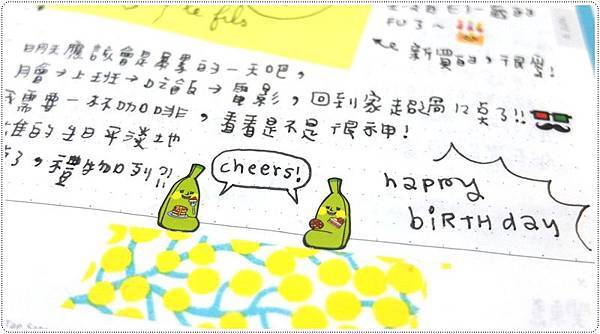 te fils
FU 3～
新買的，很愛！
明天應該會是暴累的一天吧，
月會→上班→吃飯→電影，回到家超過12點了!!
需要一杯咖啡，看看是不是很神！
的生日平淡地
了，禮物列?!!
cheers!
happy
BiRTHday